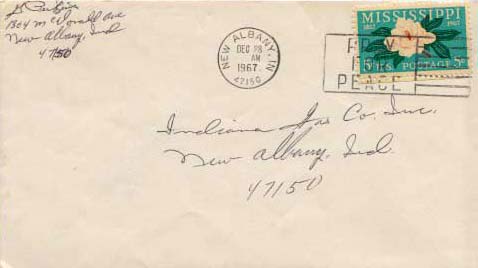 1304 McDonald Ave
New Albany, Ind
47150
NEW ALBANY, IN
DEC 28
AM
1967
47150
PRAY
FOR
PEACE
MISSISSIPPI
1817 1967
5c U.S. POSTAGE 5c
Indiana Gas Co, Inc.
New Albany, Ind.
47150